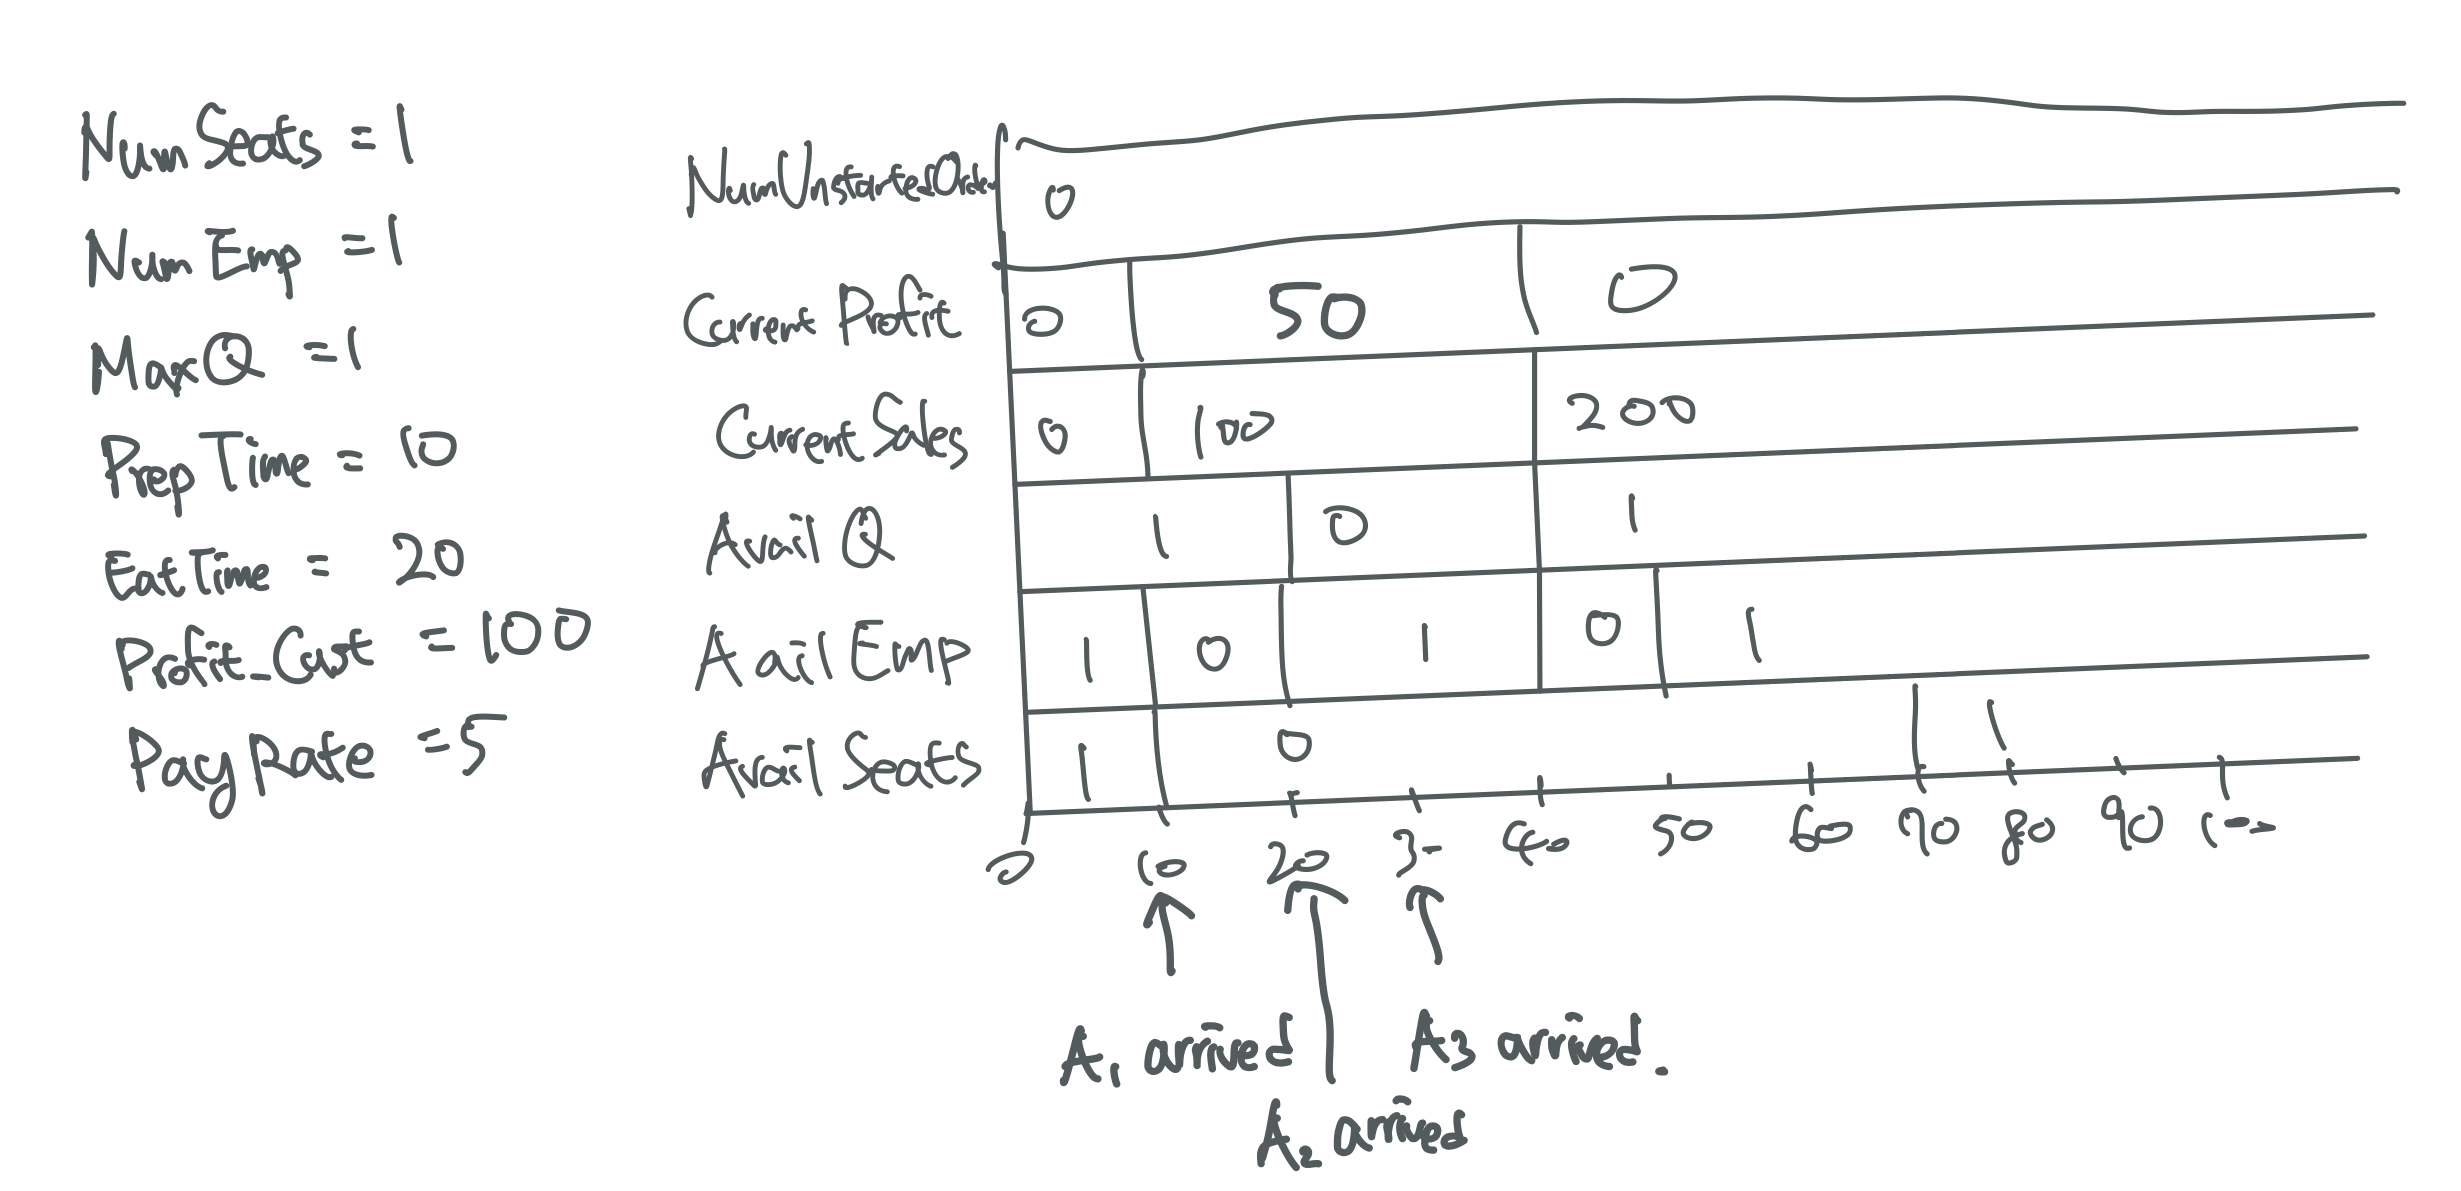 NumSeats = 1
NumEmp = 1
MaxQ = 1
PrepTime = 10
EatTime = 20
Profit_Cust = 100
PayRate = 5
0
Current Profit 0 50 0
Current Sales 0 100 200
Avail Q 1 0 1
Avail Emp 1 0 1 0 1
Avail Seats 1 0 1
0 10 20 30 40 50 60 70 80 90 100
A1 arrived A3 arrived.
A2 arrived